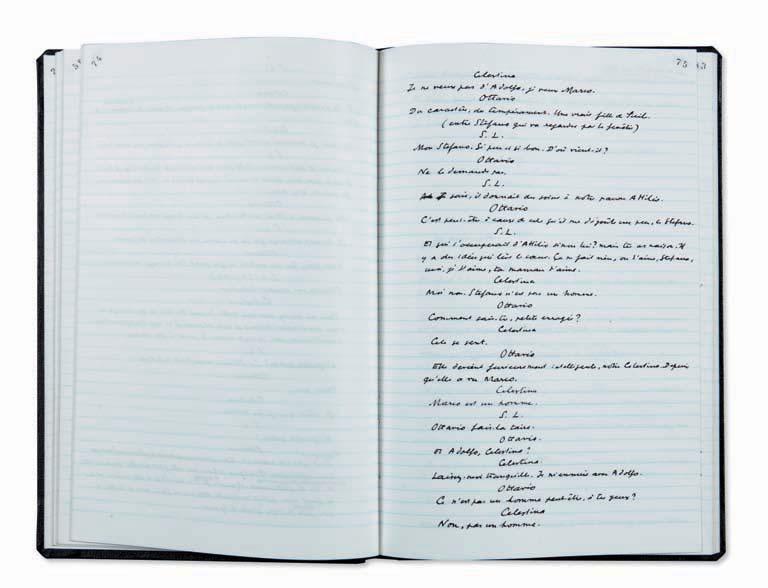 74
75
Celestina
Je ne veux pas d'Adolfo, je veux Marco.
Ottavio
Du caractère, du tempérament. Une vraie fille de Sicile.
(entre Stefano qui va regarder par la fenêtre)
S. L.
Mon Stefano. Si peu et si bon. D'où vient-il?
Ottavio
Ne le demande pas.
S. L.
Je sais, il donnait des soins à notre pauvre Attilio.
Ottavio
C'est peut-être à cause de cela qu'il me dégoûte un peu, le Stefano.
S. L.
Et qui s'occuperait d'Attilio sinon lui? mais tu as raison. Il
y a des idées qui lève le cœur. Ça ne fait rien, on t'aime, Stefano,
moi, je t'aime, ta maman t'aime.
Celestina
Moi non. Stefano n'est pas un homme.
Ottavio
Comment sais-tu, petite enragée?
Celestina
Cela se sent.
Ottavio
Elle devient furieusement intelligente, notre Celestina. Depuis
qu'elle a vu Marco.
Celestina
Marco est un homme.
S. L.
Ottavio fais-la taire.
Ottavio.
Et Adolfo, Celestina?
Celestina.
Laissez-moi tranquille. Je m'ennuie avec Adolfo.
Ottavio
Ce n'est pas un homme peut-être, à tes yeux?
Celestina
Non, pas un homme.